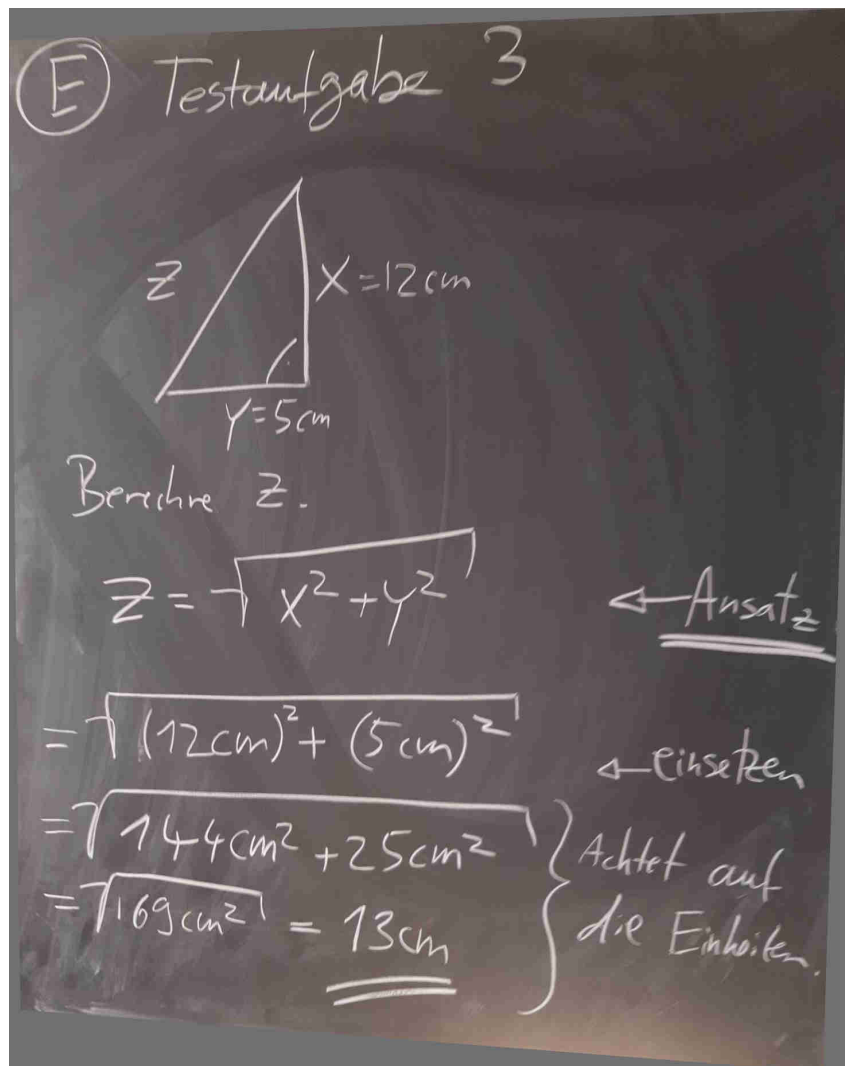 E Testaufgabe 3
Z
X=12cm
Y=5cm
Berechne Z.
Z = √(x² + y²) ← Ansatz
= √((12cm)² + (5cm)²) ← einsetzen
= √(144cm² + 25cm²) } Achtet auf
= √(169cm²) = 13cm die Einheiten.